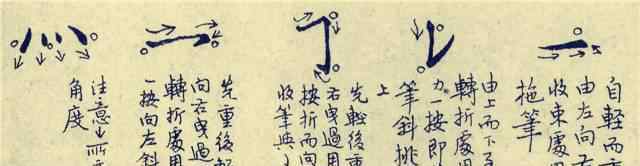 自輕而重
由左向右
收束處用
拖筆
由上而下至
轉折處用
力一按即
筆斜挑
上
先輕後重
右曳過用
按折而向
收筆與
先重後輕
向右曳過
轉折處用
一按向左斜
注意↓所示
角度